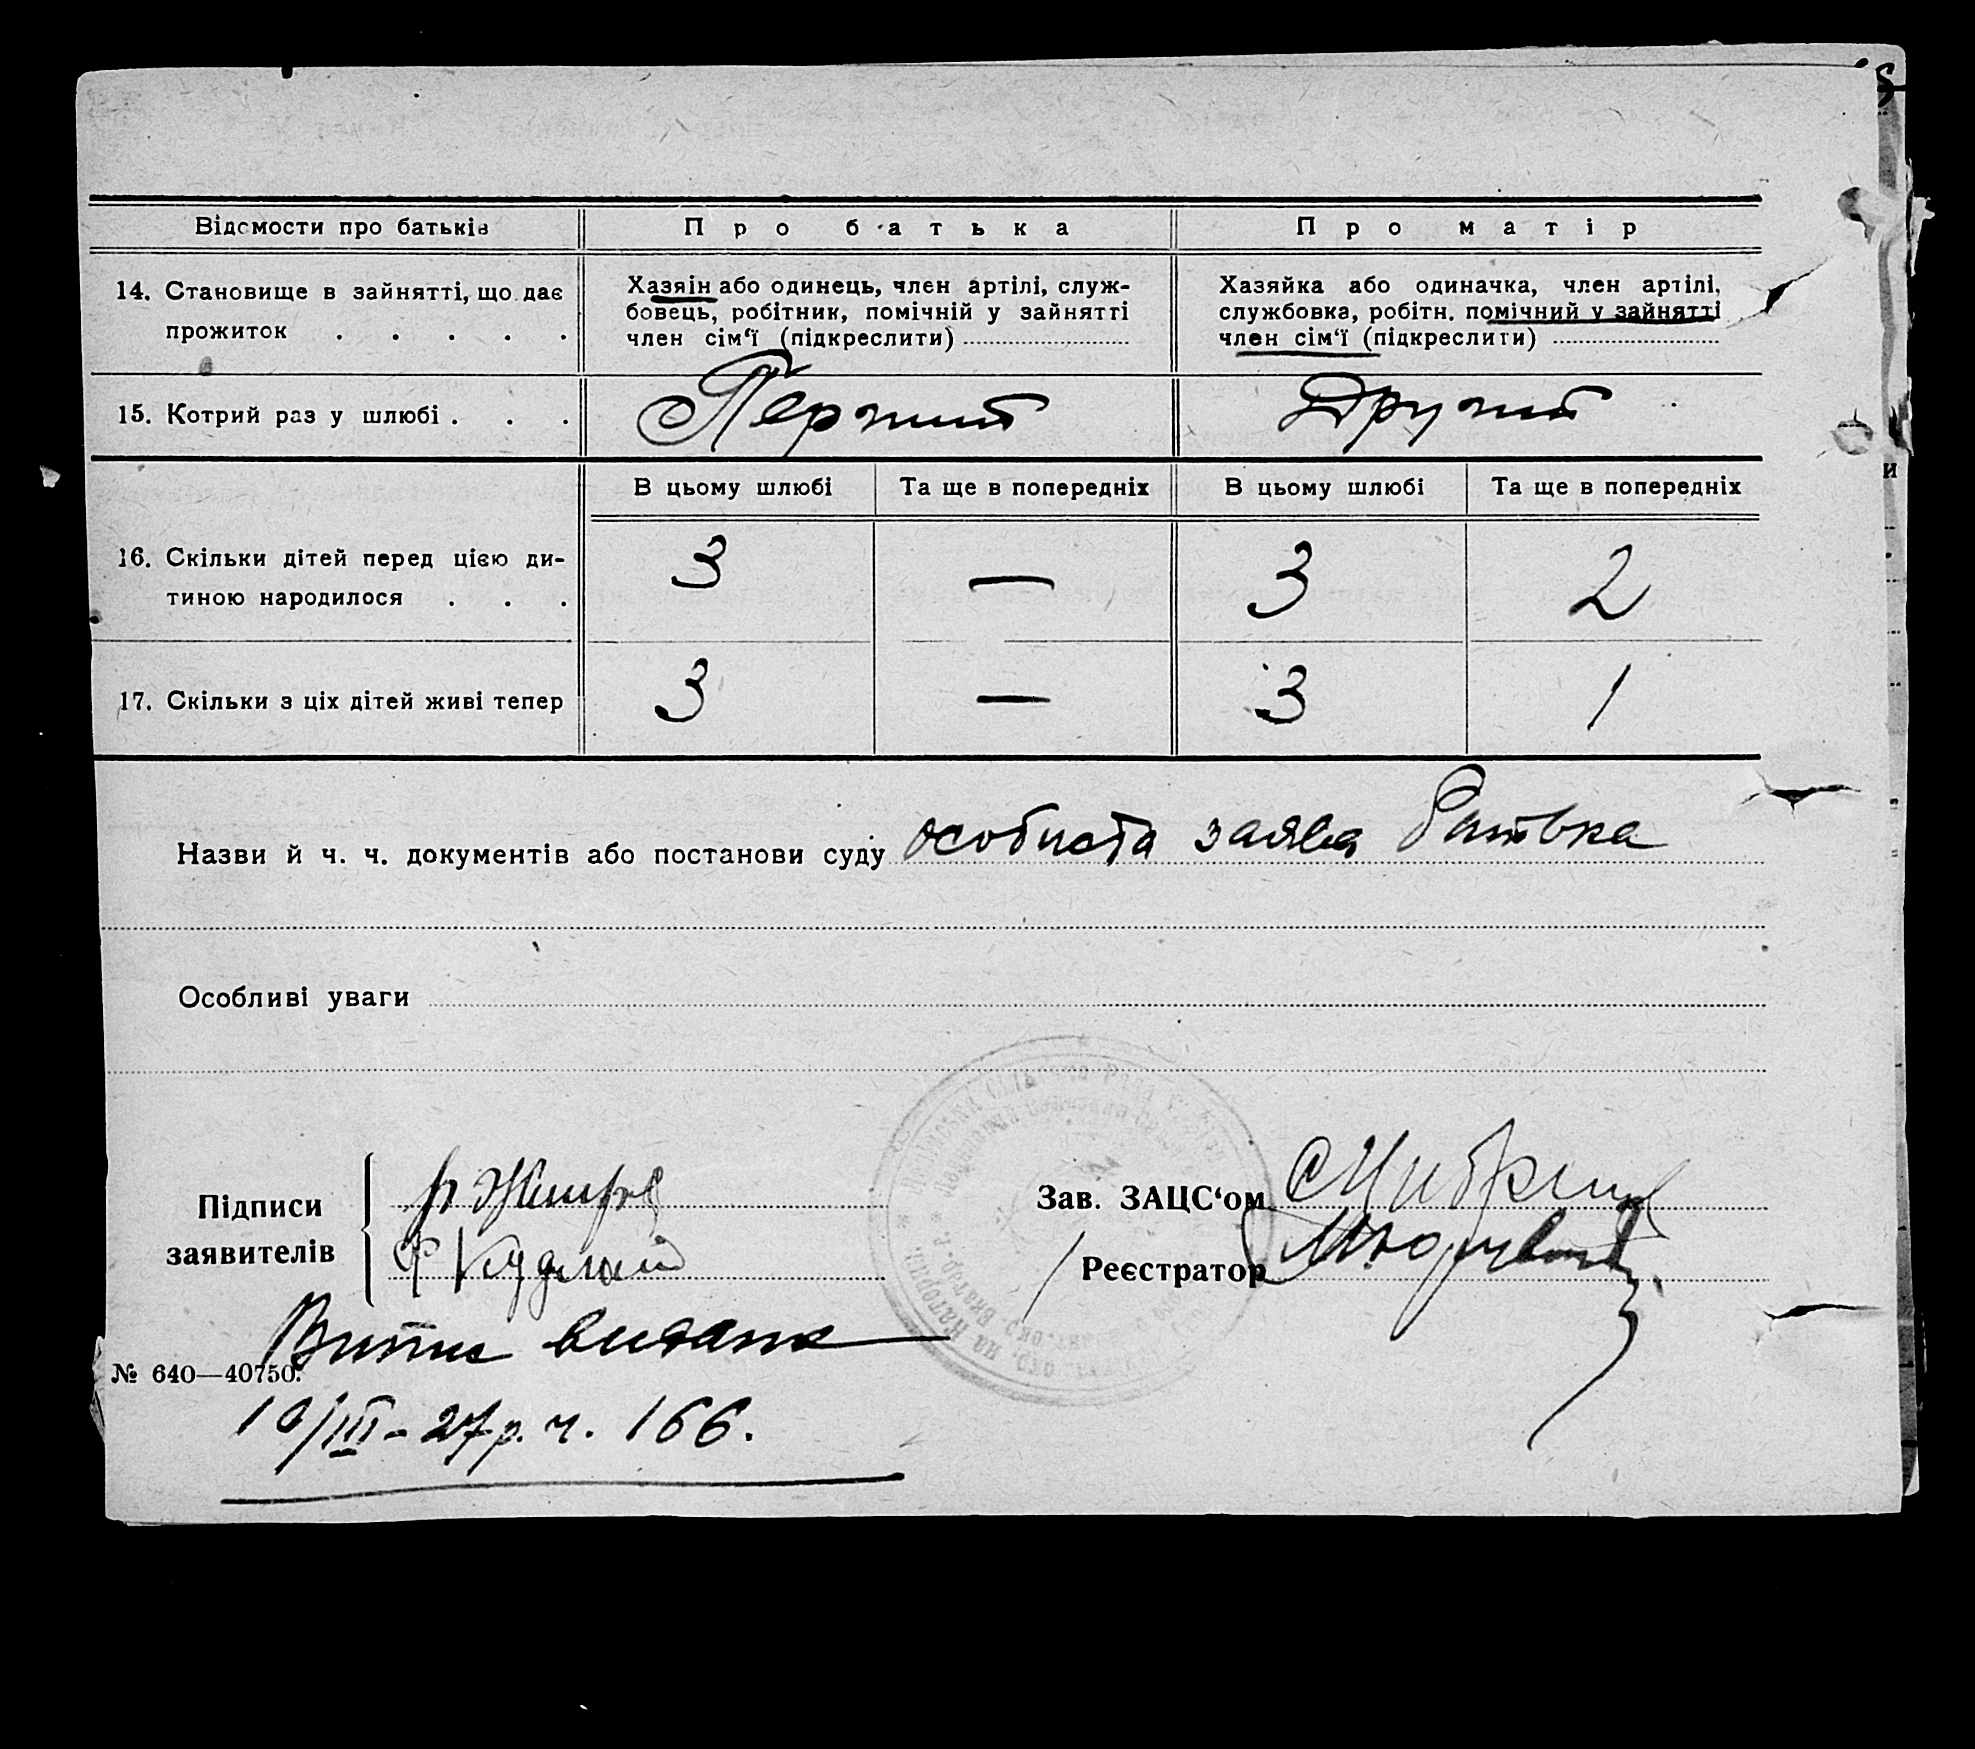 Відомости про батьків
Про батька
Про матір
14. Становище в зайнятті, що дає
прожиток . . . . .
Хазяін або одинець, член артілі, служ-
бовець, робітник, помічній у зайнятті
член сім‘ї (підкреслити)
Хазяйка або одиначка, член артілі,
службовка, робітн. помічний у зайнятті
член сім‘ї (підкреслити)
15. Котрий раз у шлюбі . . .
Перший
Другий
В цьому шлюбі
Та ще в попередніх
В цьому шлюбі
Та ще в попередніх
16. Скільки дітей перед цією ди-
тиною народилося . . .
3
—
3
2
17. Скільки з ціх дітей живі тепер
3
—
3
1
Назви й ч. ч. документів або постанови суду особиста заява батька
Особливі уваги
Підписи
заявителів
Зав. ЗАЦС‘ом
Реєстратор
Витяг видано
№ 640—40750.
10/III - 27 р. ч. 166.